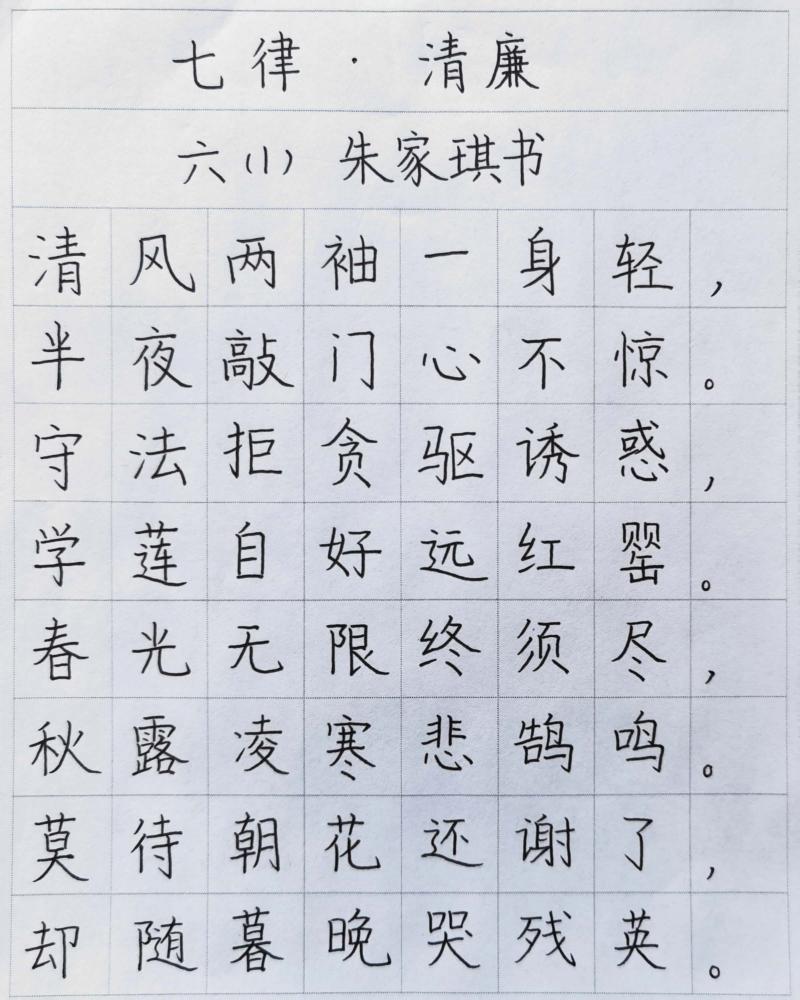 七律·清廉
六(1)朱家琪书
清风两袖一身轻，
半夜敲门心不惊。
守法拒贪驱诱惑，
学莲自好远红罂。
春光无限终须尽，
秋露凌寒悲鹄鸣。
莫待朝花还谢了，
却随暮晚哭残英。